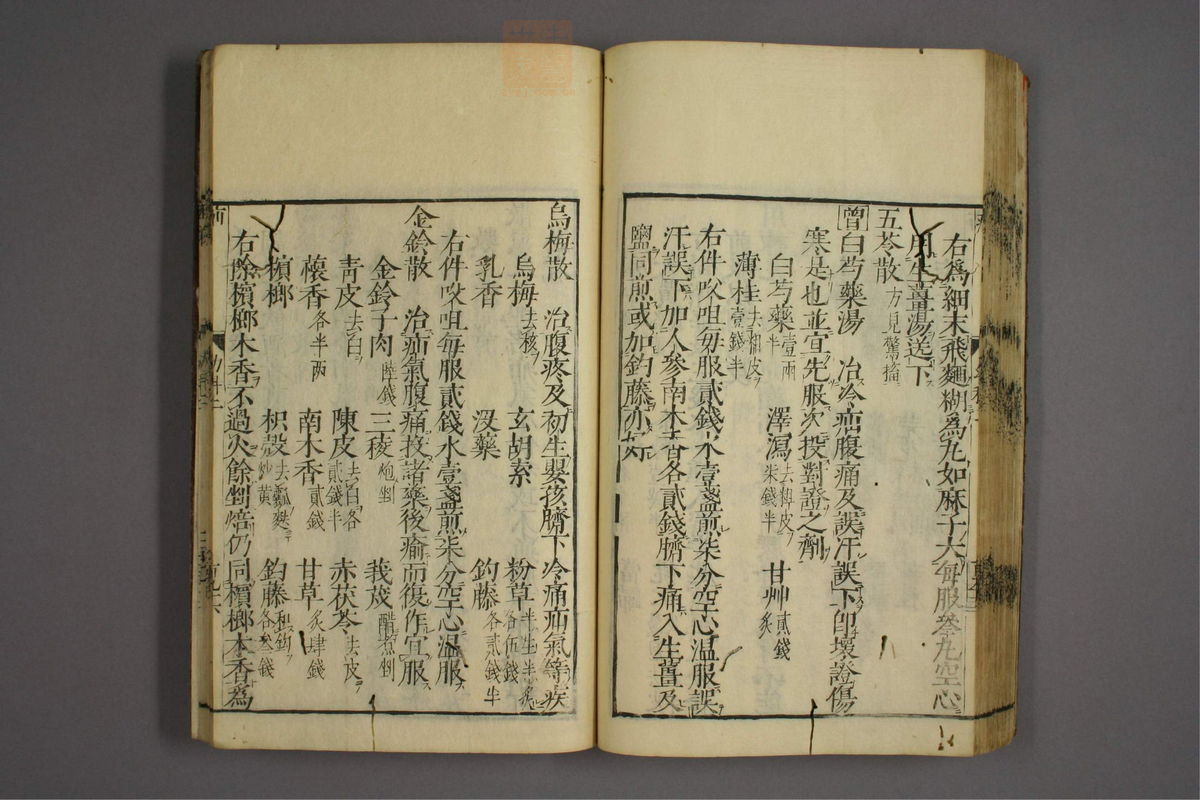 右為細末飛麵糊為丸如麻子大每服叁丸空心
用生薑湯送下
五苓散 方見驚搐
曾白芍藥湯 治冷疝腹痛及誤汗誤下即壞證傷
寒是也並宜先服次投對證之劑
白芍藥 壹兩半 澤瀉 去粗皮柒錢半 甘艸 貳錢炙
薄桂 去粗皮壹錢半
右件㕮咀每服貳錢水壹盞煎柒分空心温服誤
汗誤下加人參南木香各貳錢臍下痛入生薑及
鹽同煎或加鈎藤亦好
烏梅散 治腹疼及初生嬰孩臍下冷痛疝氣等疾
烏梅 去核 玄胡索 粉草 半生半炙各伍錢
乳香 沒藥 鈎藤 各貳錢半
右件㕮咀每服貳錢水壹盞煎柒分空心温服
金鈴散 治疝氣腹痛投諸藥後瘉而復作宜服
金鈴子肉 陸錢 三稜 炮剉 莪茂 醋煮剉
青皮 去白 陳皮 去白各貳錢半 赤茯苓 去皮
檳香 各半兩 南木香 貳錢 甘草 炙肆錢
檳榔 枳殼 去瓤麩炒黃 鈎藤 和鈎各叁錢
右除檳榔木香不過火餘剉焙仍同檳榔木香為